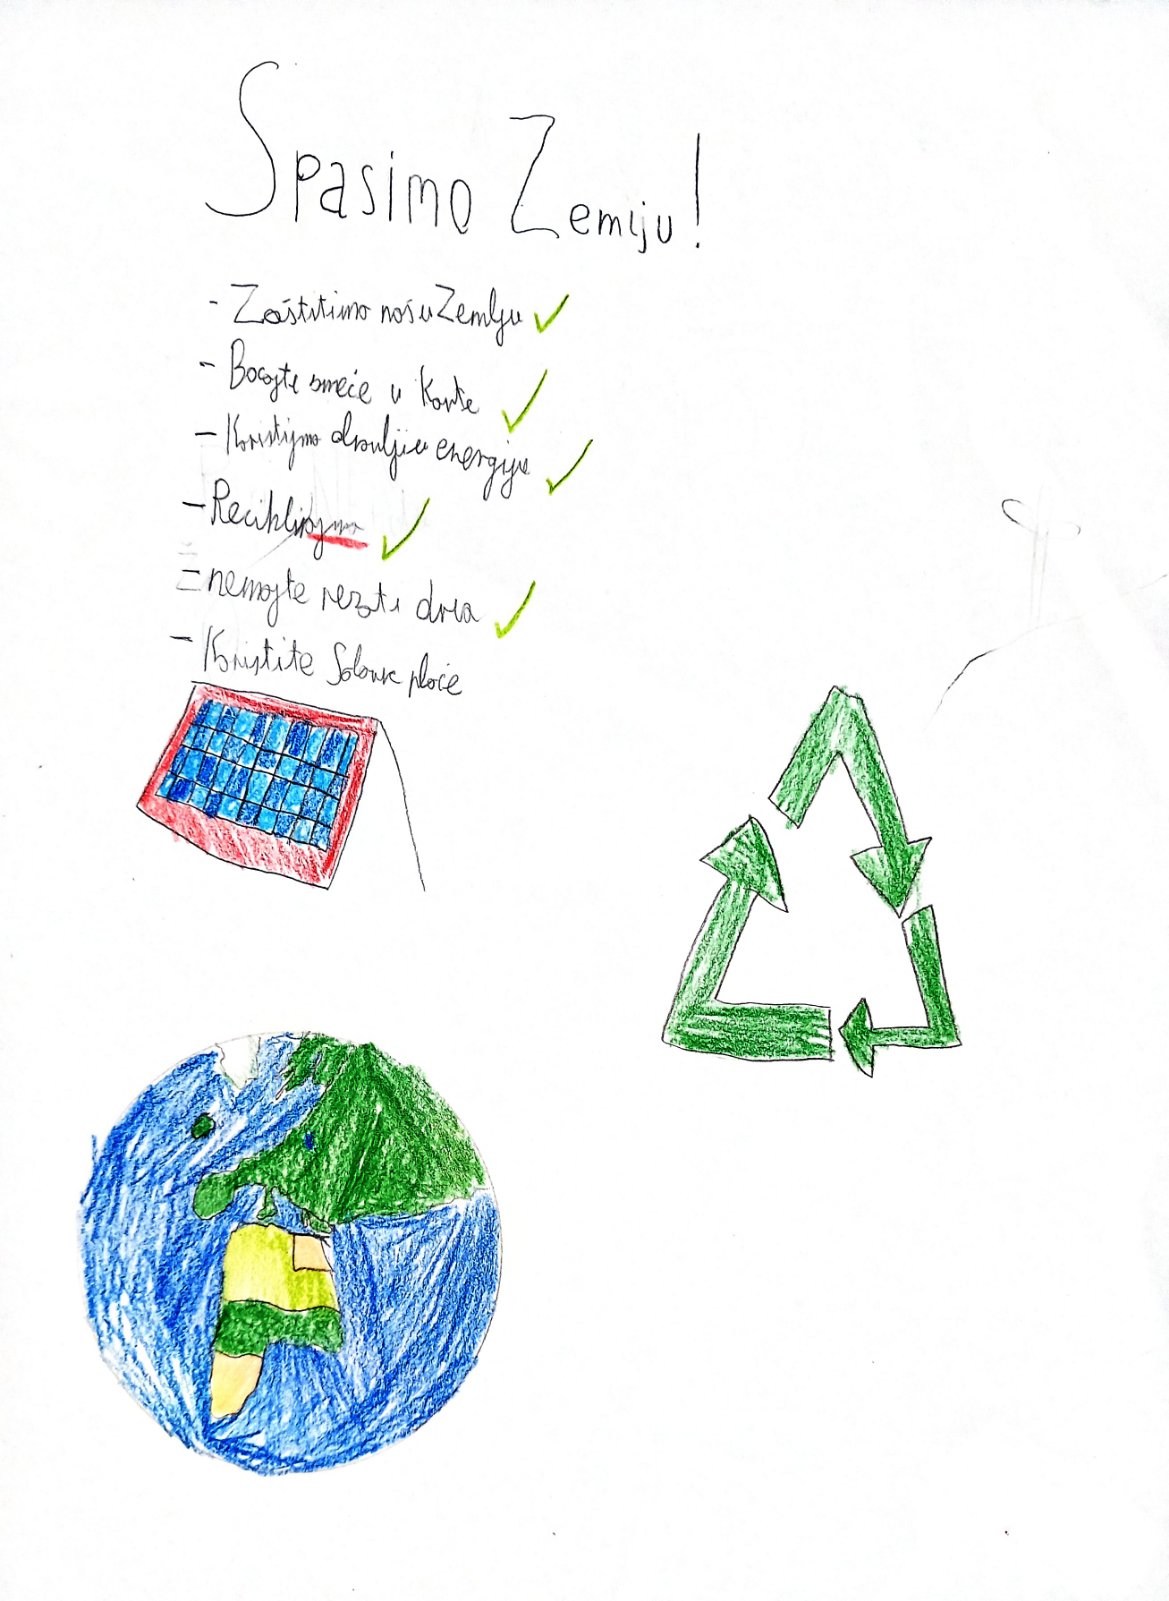 Spasimo Zemiju!
- Zaštitimo našu Zemlju
- Bacajte smeće u Kante
- Koristijmo obnovljivu energiju
- Reciklirajmo
- nemojte rezati drva
- Koristite Solarne ploče